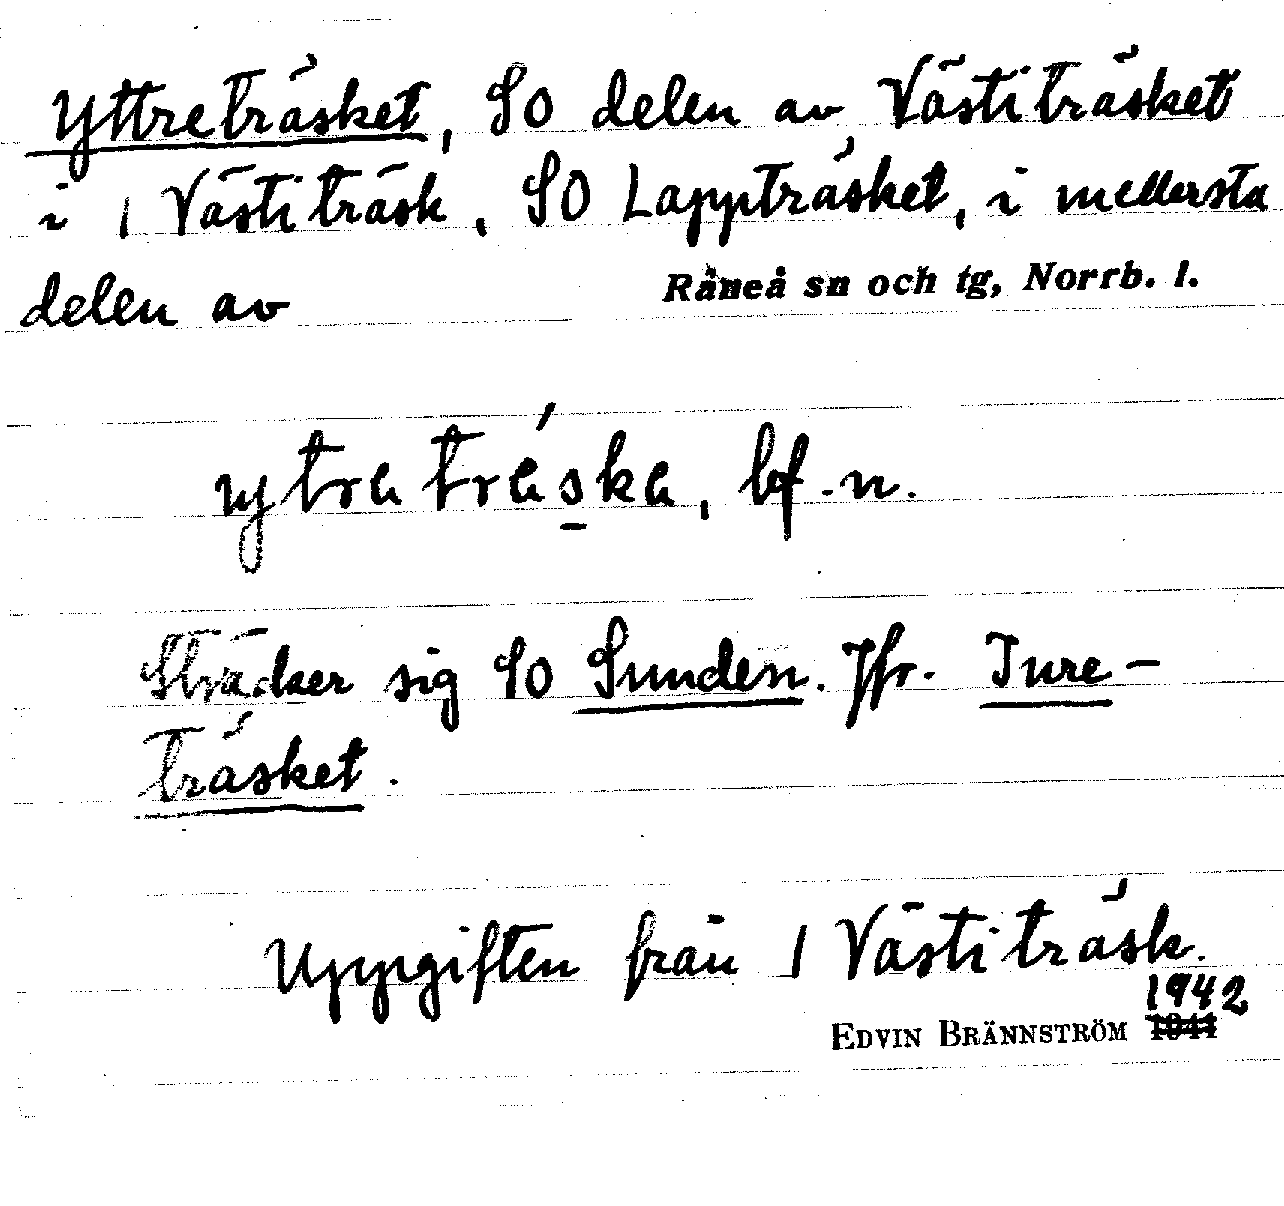 Yttreträsket, SO delen av Västiträsket
i 1 Västiträsk, SO Lappträsket, i mellersta
delen av Råneå sn och tg, Norrb. l.
ytra tráska, bf. n.
Sträcker sig SO Sunden. Jfr. Inre-
träsket.
Uppgiften från 1 Västiträsk.
1942
EDVIN BRÄNNSTRÖM 1941